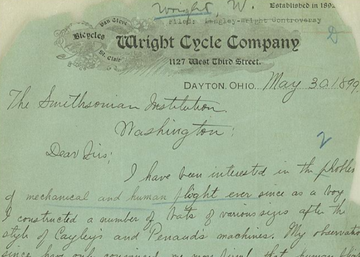 Wright, W.
Established in 189
Filed: Langley-Wright Controversy
Van Cleve
Bicycles
St. Clair
Wright Cycle Company
1127 West Third Street.
DAYTON, OHIO. May 30, 1899
The Smithsonian Institution
Washington;
2
Dear Sirs;
I have been interested in the problem
of mechanical and human flight ever since as a boy
I constructed a number of bats of various sizes after the
style of Cayley's and Penaud's machines. My observations
since have only convinced me more firmly that human